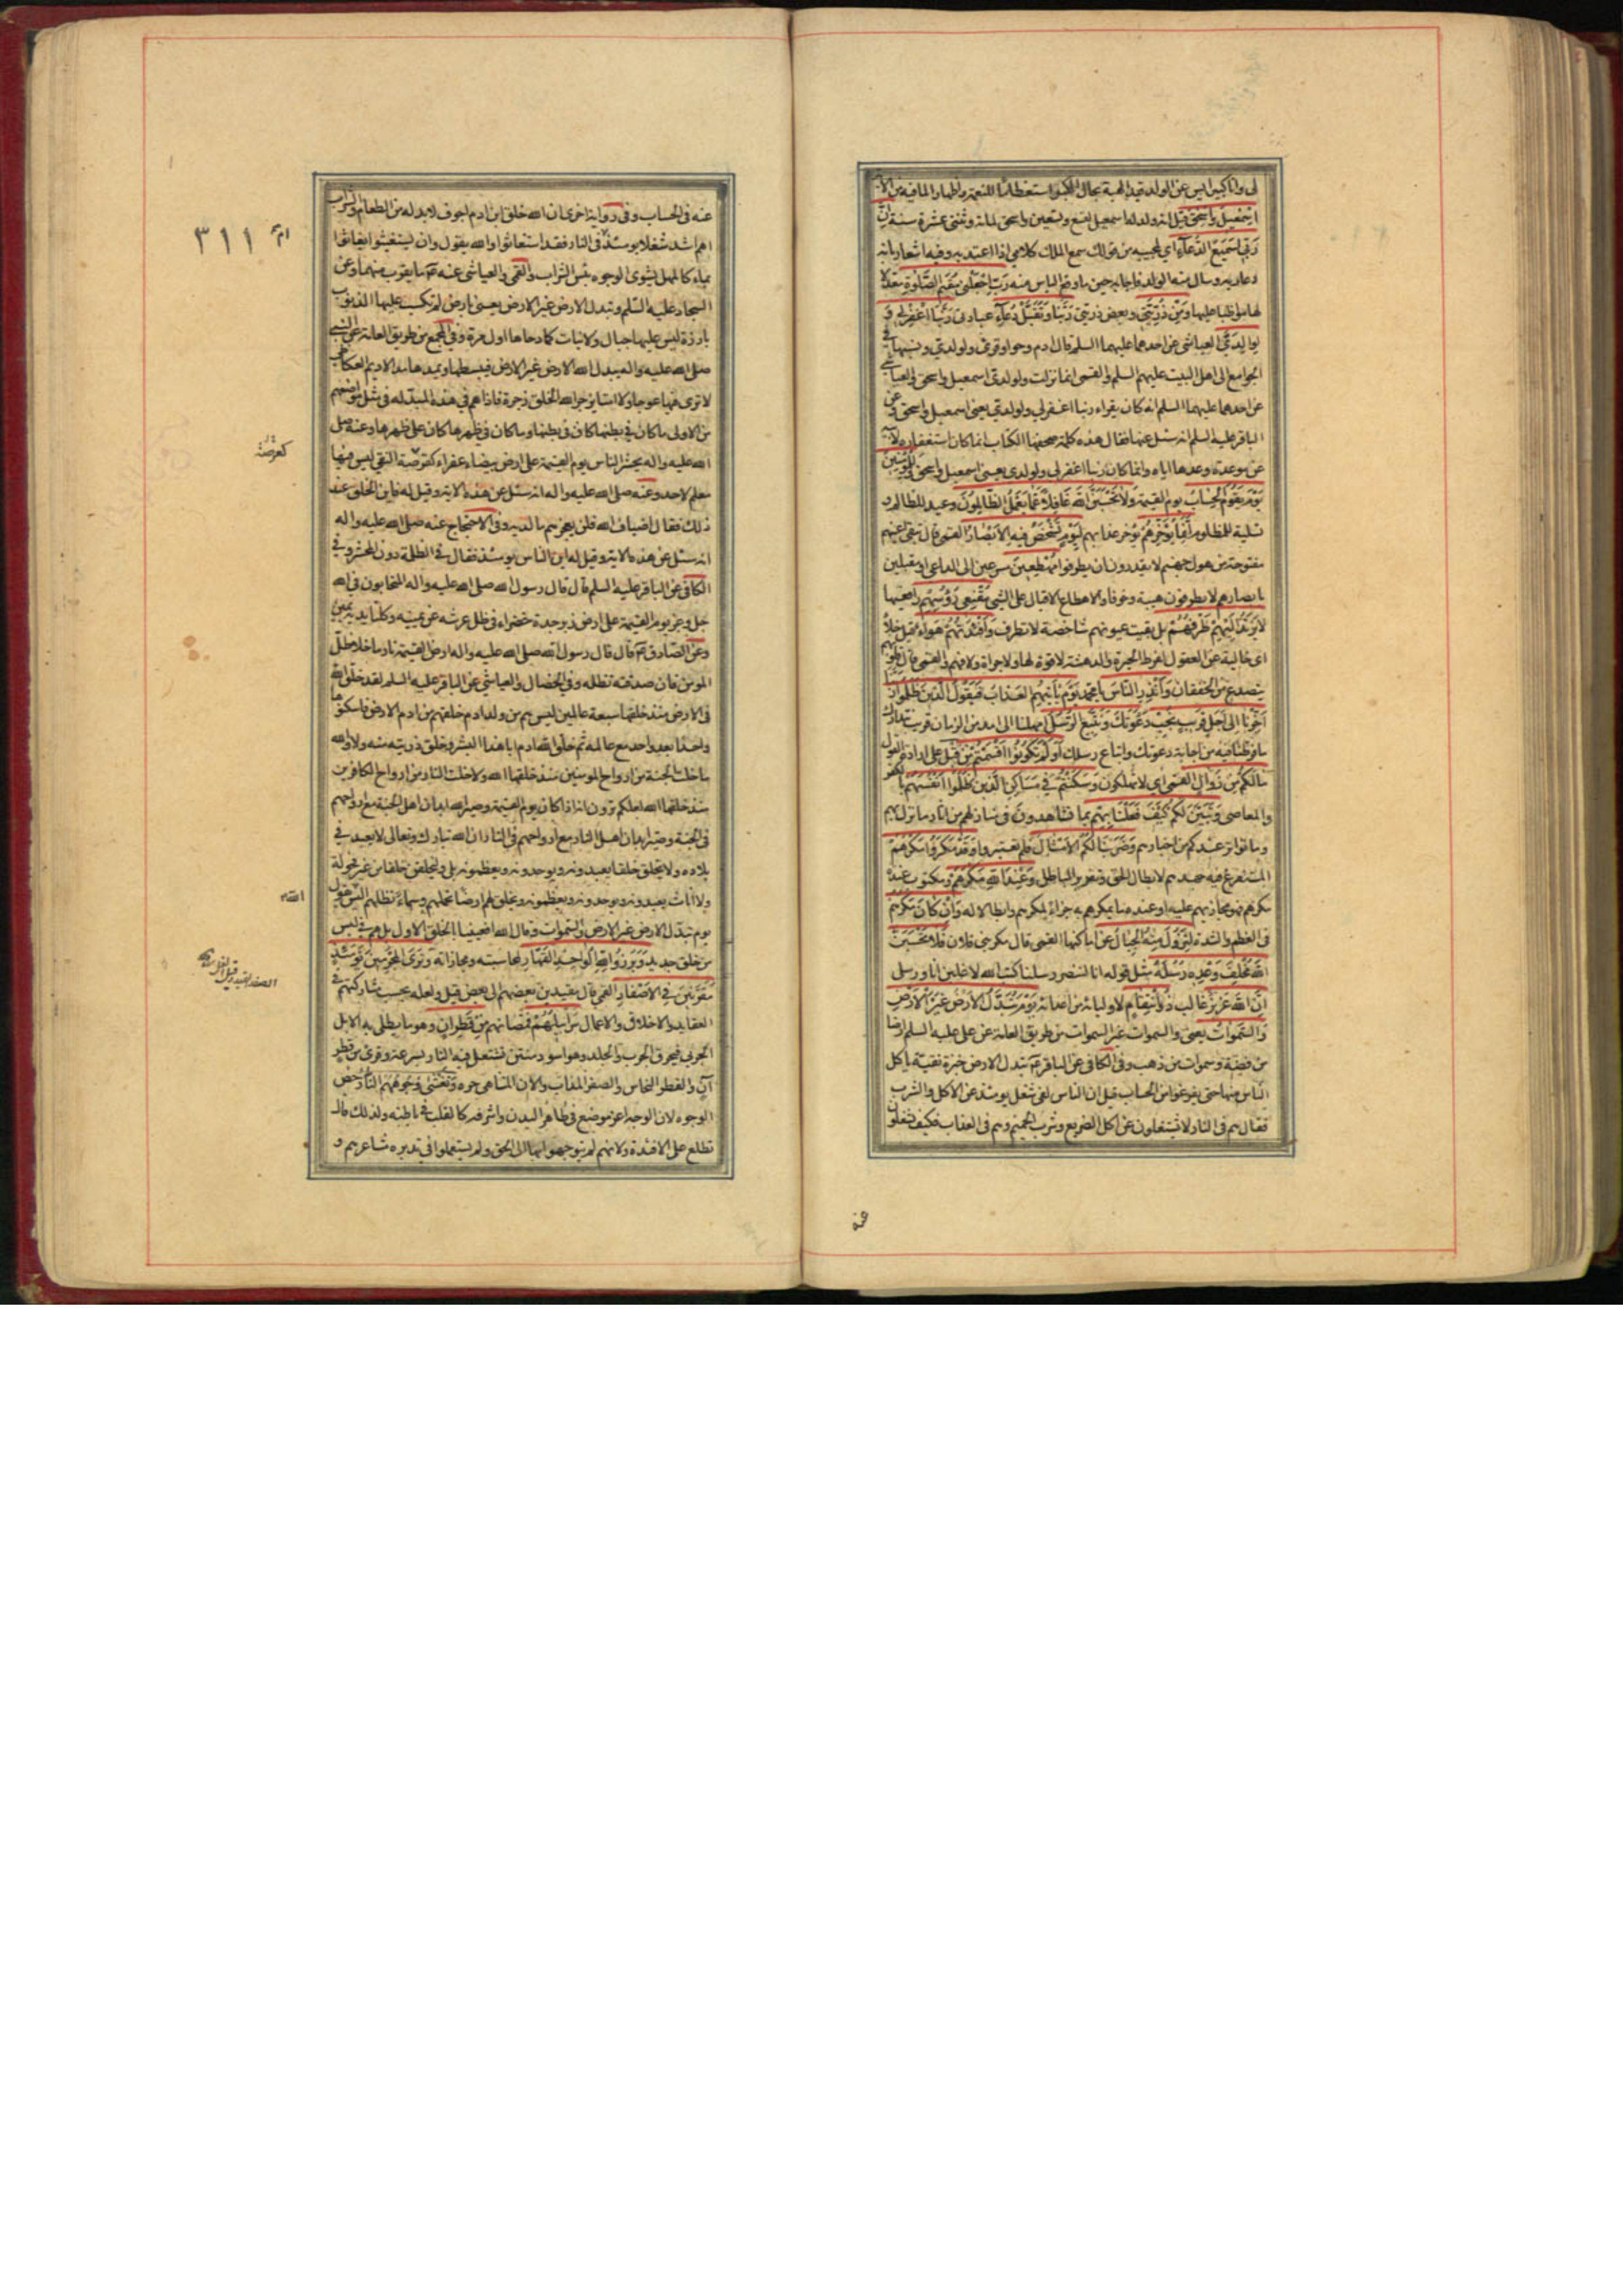 لى وانا كبير ايس عن الولد قيد الهبة بحال الكبر استعظامًا للنعمة واظهارا لما فيه من الآية
اسمعيل واسحق قيل انه ولد له اسمعيل لتسع وتسعين واسحق لمائة وثنتى عشرة سنة ان
ربى لسميع الدعاء اى لمجيبه من قولك سمع الملك كلامى اذا اعتد به وفيه اشعار بانه
دعا ربه وسال منه الولد فاجابه حين ما وقع الياس منه رب اجعلنى مقيم الصلوة معدلا
لها مواظبا عليها ومن ذريتى وبعض ذريتى ربنا وتقبل دعاء عبادتى ربنا اغفر لى و
لوالدى العياشى عن احدهما عليهما السلم قال ادم وحوا وقرئ ولولدى ونسبها فى
الجوامع الى اهل البيت عليهم السلم والقمى انما نزلت ولولدى اسمعيل واسحق والعياشى
عن احدهما عليهما السلم انه كان يقراء ربنا اغفر لى ولولدى يعنى اسمعيل واسحق وعن
الباقر عليه السلم انه سئل عنها فقال هذه كلمة صحفها الكتاب انما كان استغفاره لابيه
عن موعدة وعدها اياه وانما كان ربنا اغفر لى ولولدى يعنى اسمعيل واسحق وللمؤمنين
يوم يقوم الحساب يوم القيمة ولا تحسبن الله غافلا عما يعمل الظالمون وعيد للظالم و
تسلية للمظلوم انما يؤخرهم يؤخر عذابهم ليوم تشخص فيه الابصار القمى قال تبقى اعينهم
مفتوحة من هول جهنم لا يقدرون ان يطرفوا مهطعين مسرعين الى الداعى او مقبلين
بابصارهم لا يطرفون هيبة وخوفا والاهطاع الاقبال على الشئ مقنعى رؤسهم رافعيها
لا يرتد اليهم طرفهم بل بقيت عيونهم شاخصة لا تطرف وافئدتهم هواء قيل خلاء
اى خالية عن العقول لفرط الحيرة والدهشة لا قوة لها ولا جراة ولا فهم والقمى قال قلوبهم
يتصدع من الخفقان وانذر الناس يا محمد يوم ياتيهم العذاب فيقول الذين ظلموا ربنا
اخرنا الى اجل قريب نجب دعوتك ونتبع الرسل امهلنا الى امد من الزمان قريب نتدارك
ما فرطنا فيه من اجابة دعوتك واتباع رسلك اولم تكونوا اقسمتم من قبل على ارادة القول
ما لكم من زوال القمى اى لا تهلكون وسكنتم فى مساكن الذين ظلموا انفسهم بالكفر
والمعاصى وتبين لكم كيف فعلنا بهم بما تشاهدون فى منازلهم من اثار ما نزل بهم
وما تواتر عندكم من اخبارهم وضربنا لكم الامثال فلم تعتبروا وقد مكروا مكرهم
المستفرغ فيه جهدهم لابطال الحق وتقرير الباطل وعند الله مكرهم ومكتوب عنده
مكرهم فهو مجازيهم عليه او عنده ما يمكرهم به جزاء لمكرهم وابطالا له وان كان مكرهم
فى العظم والشدة لتزول منه الجبال عن اماكنها القمى قال مكر بنى فلان فلا تحسبن
الله مخلف وعده رسله مثل قوله انا لننصر رسلنا كتب الله لاغلبن انا ورسلى
ان الله عزيز غالب ذو انتقام لاوليائه من اعدائه يوم تبدل الارض غير الارض
والسموات يعنى والسموات غير السموات من طريق العامة عن على عليه السلم ارضا
من فضة وسموات من ذهب وفى الكافى عن الباقر ع تبدل الارض خبزة نقية ياكل
الناس منها حتى يفرغوا من الحساب قيل ان الناس لفى شغل يومئذ عن الاكل والشرب
فقال هم فى النار لا يشتغلون عن اكل الضريع وشرب الحميم وهم فى العذاب فكيف يشتغلون
عنه
٣١١
عنه فى الحساب وفى رواية اخرى ان الله خلق ابن ادم اجوف لا بد له من الطعام والشراب
اهم اشد شغلا يومئذ ام فى النار فقد استغاثوا والله يقول وان يستغيثوا يغاثوا
بماء كالمهل يشوى الوجوه بئس الشراب والقمى والعياشى عنه ع ما يقرب منهما وعن
السجاد عليه السلم وتبدل الارض غير الارض يعنى بارض لم تكسب عليها الذنوب
بارزة ليس عليها جبال ولا نبات كما دحاها اول مرة وفى المجمع من طريق العامة عن النبى
صلى الله عليه واله يبدل الله الارض غير الارض فيبسطها ويمدها مد الاديم العكاظى
لا ترى فيها عوجا ولا امتا يزجر الله الخلق زجرة فاذا هم فى هذه المبدلة فى مثل مواضعهم
من الاولى ما كان فى بطنها كان فى بطنها وما كان فى ظهرها كان على ظهرها وعنه صلى
الله عليه واله يحشر الناس يوم القيمة على ارض بيضاء عفراء كقرصة النقى ليس فيها
كقرصة
معلم لاحد وعنه صلى الله عليه واله انه سئل عن هذه الاية وقيل له فاين الخلق عند
ذلك فقال اضياف الله فلن يعجزهم ما لديه وفى الاحتجاج عنه صلى الله عليه واله
انه سئل عن هذه الاية وقيل له اين الناس يومئذ فقال فى الظلمة دون المحشر وفى
الكافى عن الباقر عليه السلم قال قال رسول الله صلى الله عليه واله المتحابون فى الله
جل وعز يوم القيمة على ارض زبرجدة خضراء فى ظل عرشه عن يمينه وكلتا يديه يمين
وعن الصادق ع قال قال رسول الله صلى الله عليه واله ارض القيمة نار ما خلا ظل
المومن فان صدقته تظله وفى الخصال والعياشى عن الباقر عليه السلم لقد خلق الله
فى الارض منذ خلقها سبعة عالمين ليس هم من ولد ادم خلقهم من اديم الارض فاسكنوها
واحدا بعد واحد مع عالمه ثم خلق الله ادم ابا هذا البشر وخلق ذريته منه ولا والله
ما خلت الجنة من ارواح المومنين منذ خلقها الله ولا خلت النار من ارواح الكافرين
منذ خلقها الله لعلكم ترون انه اذا كان يوم القيمة وصير الله ابدان اهل الجنة مع ارواحهم
فى الجنة وصير ابدان اهل النار مع ارواحهم فى النار ان الله تبارك وتعالى لا يعبد فى
بلاده ولا يخلق خلقا يعبدونه ويوحدونه ويعظمونه بلى وليخلقن خلقا من غير فحولة
ولا اناث يعبدونه ويوحدونه ويعظمونه ويخلق لهم ارضا تحملهم وسماء تظلهم اليس يقول
الله
يوم تبدل الارض غير الارض والسموات وقال الله افعيينا بالخلق الاول بل هم فى لبس
من خلق جديد وبرزوا لله الواحد القهار لمحاسبته ومجازاته وترى المجرمين يومئذ
مقرنين فى الاصفاد القمى قال مقيدين بعضهم الى بعض قيل ولعله بحسب مشاركتهم فى
العقايد والاخلاق والاعمال سرابيلهم قمصانهم من قطران وهو ما يطلى به الابل
الجربى فيحرق الجرب والجلد وهو اسود منتن تشتعل فيه النار بسرعة وقرئ من قطر
آن والقطر النحاس والصفر المذاب والآن المتناهى حره وتغشى وجوههم النار خص
الوجوه لان الوجه اعز موضع فى ظاهر البدن واشرفه كالقلب فى باطنه ولذلك قال
تطلع على الافئدة ولانهم لم يتوجهوا بها الى الحق ولم يستعملوا فى تدبره مشاعرهم و